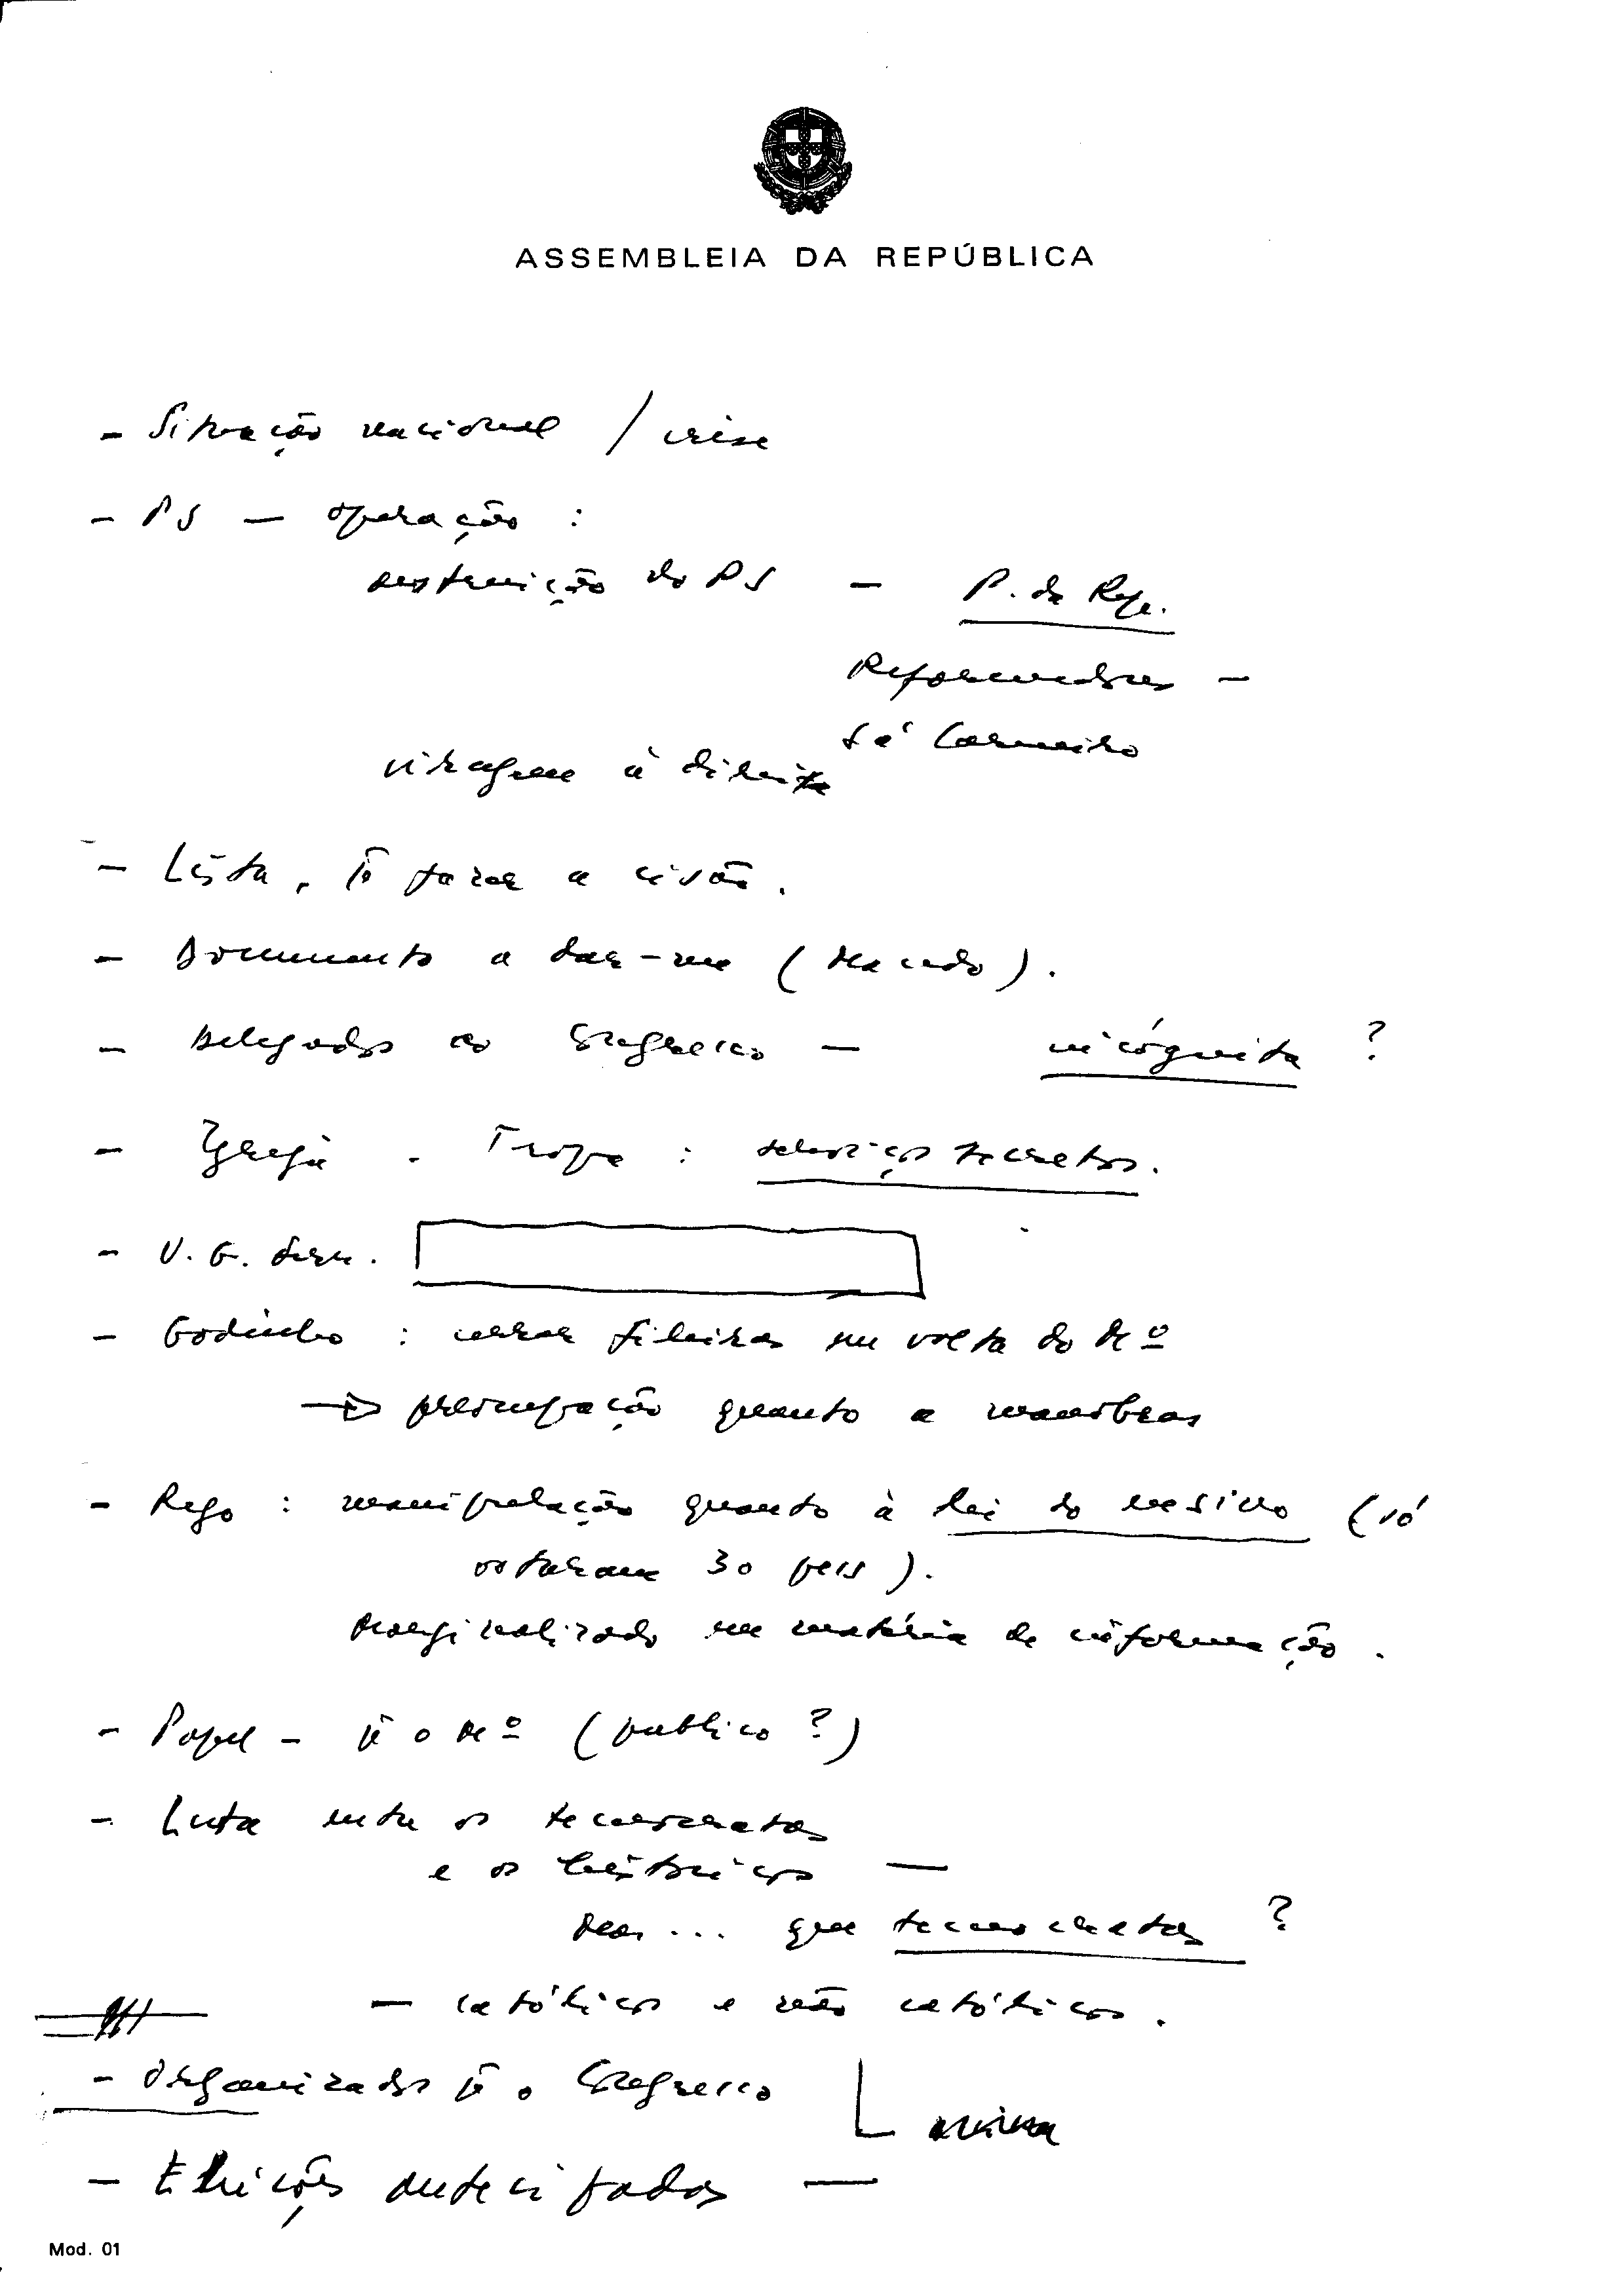 ASSEMBLEIA DA REPÚBLICA
- Situação nacional / crise
- PS — operação :
destruição do PS — P. da Rep.
Reformadores -
Sá Carneiro
viragem à direita
- Lista, p̃ fazer a cisão.
- Documento a dar-me (Macedo).
- Delegados ao Congresso — incógnita ?
- Igreja . Tropa : serviços secretos.
- V. G. Sern.
- Godinho : cerrar fileiras em volta do M º
→ preocupação quanto a manobras
- Rego : manipulação quanto à lei do ensino (só
votaram 30 pess).
Marginalizado em matéria de informação.
- Papel - p̃ o M º (publico ?)
- Luta entre os tecnocratas
e os históricos —
Mas... que tecnocratas ?
— católicos e não católicos.
- Organizados p̃ o Congresso
- Eleições antecipadas —
Mod. 01